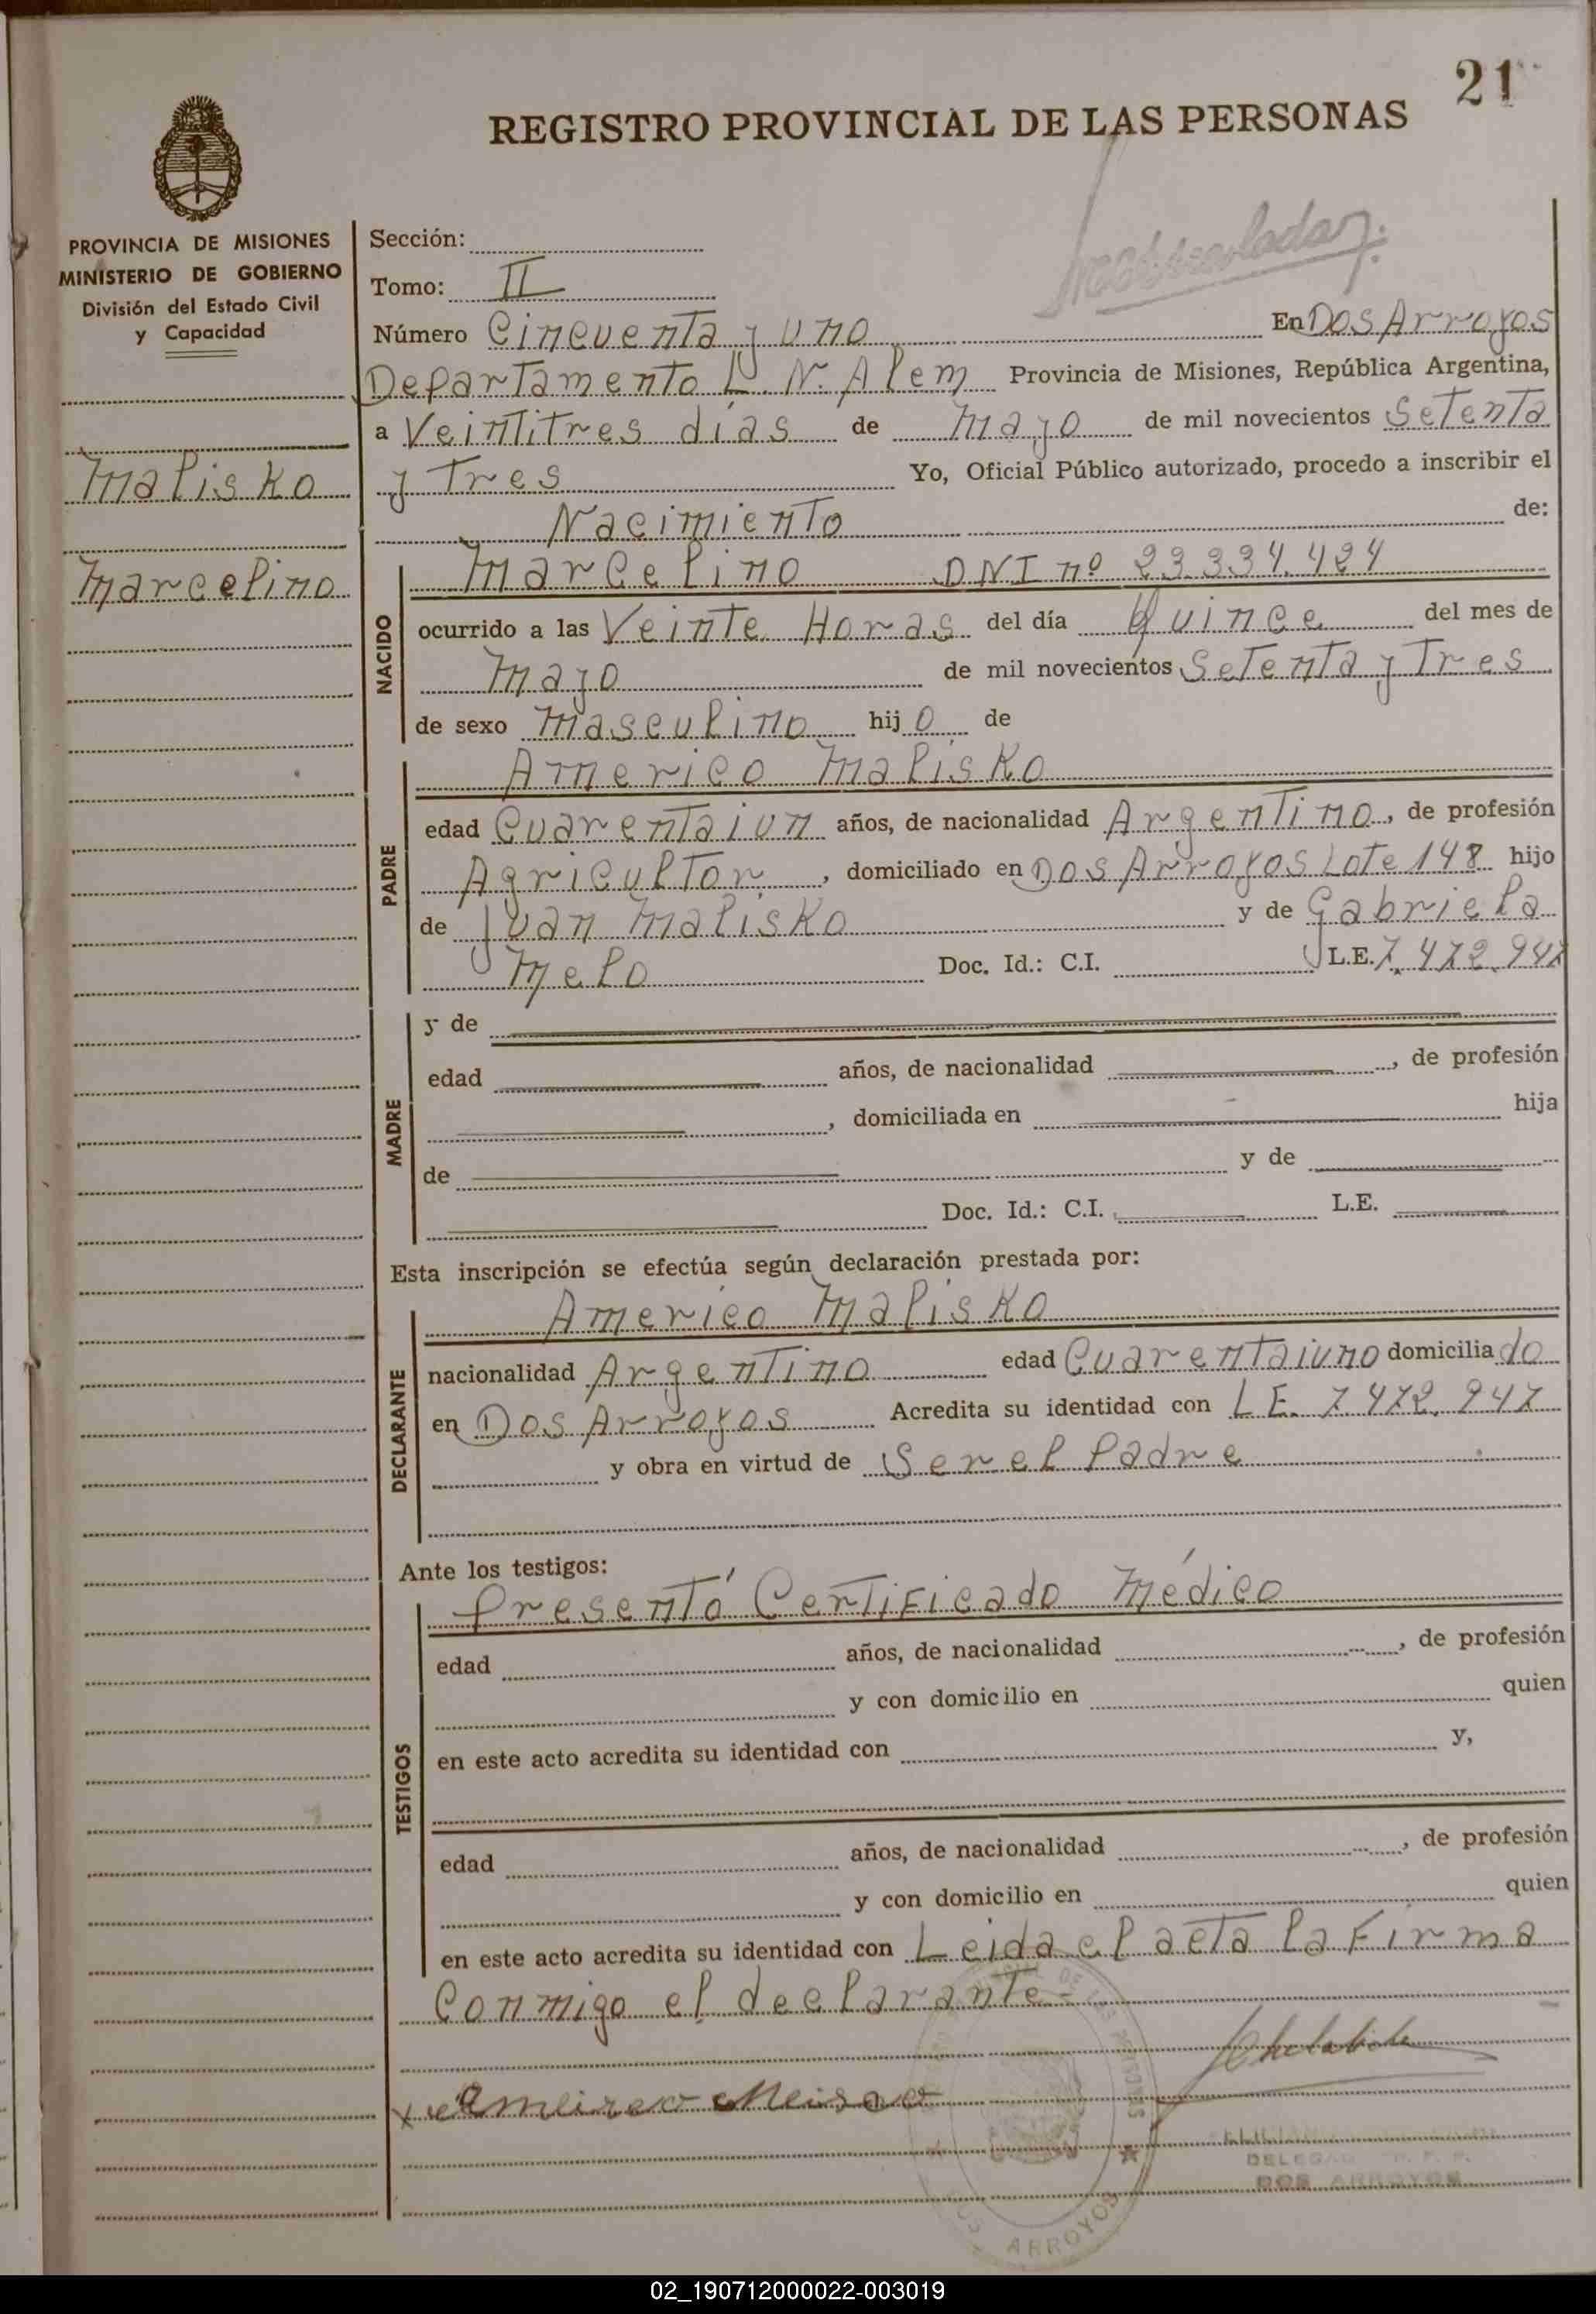 21
REGISTRO PROVINCIAL DE LAS PERSONAS
PROVINCIA DE MISIONES
MINISTERIO DE GOBIERNO
División del Estado Civil
y Capacidad
Malisko
Marcelino
Sección:
Tomo: II
Número Cincuenta y uno En Dos Arroyos
Departamento L. N. Alem Provincia de Misiones, República Argentina,
a Veintitres días de Mayo de mil novecientos Setenta
y Tres Yo, Oficial Público autorizado, procedo a inscribir el
Nacimiento de:
NACIDO
Marcelino DNI nº 23.334.424
ocurrido a las Veinte Horas del día Quince del mes de
Mayo de mil novecientos Setenta y Tres
de sexo Masculino hijo de
PADRE
Americo Malisko
edad Cuarentaiun años, de nacionalidad Argentino, de profesión
Agricultor, domiciliado en Dos Arroyos Lote 148 hijo
de Juan Malisko y de Gabriela
Melo Doc. Id.: C.I. L.E. 7.472.947
MADRE
y de
edad años, de nacionalidad , de profesión
, domiciliada en hija
de y de
Doc. Id.: C.I. L.E.
Esta inscripción se efectúa según declaración prestada por:
DECLARANTE
Americo Malisko
nacionalidad Argentino edad Cuarentaiuno domiciliado
en Dos Arroyos Acredita su identidad con L E. 7 472.947
y obra en virtud de Ser el Padre
Ante los testigos:
TESTIGOS
Presentó Certificado Médico
edad años, de nacionalidad , de profesión
y con domicilio en quien
en este acto acredita su identidad con y,
edad años, de nacionalidad , de profesión
y con domicilio en quien
en este acto acredita su identidad con Leida el acta la Firma
Conmigo el declarante-
DOS ARROYOS
DOS ARROYOS
02_190712000022-003019